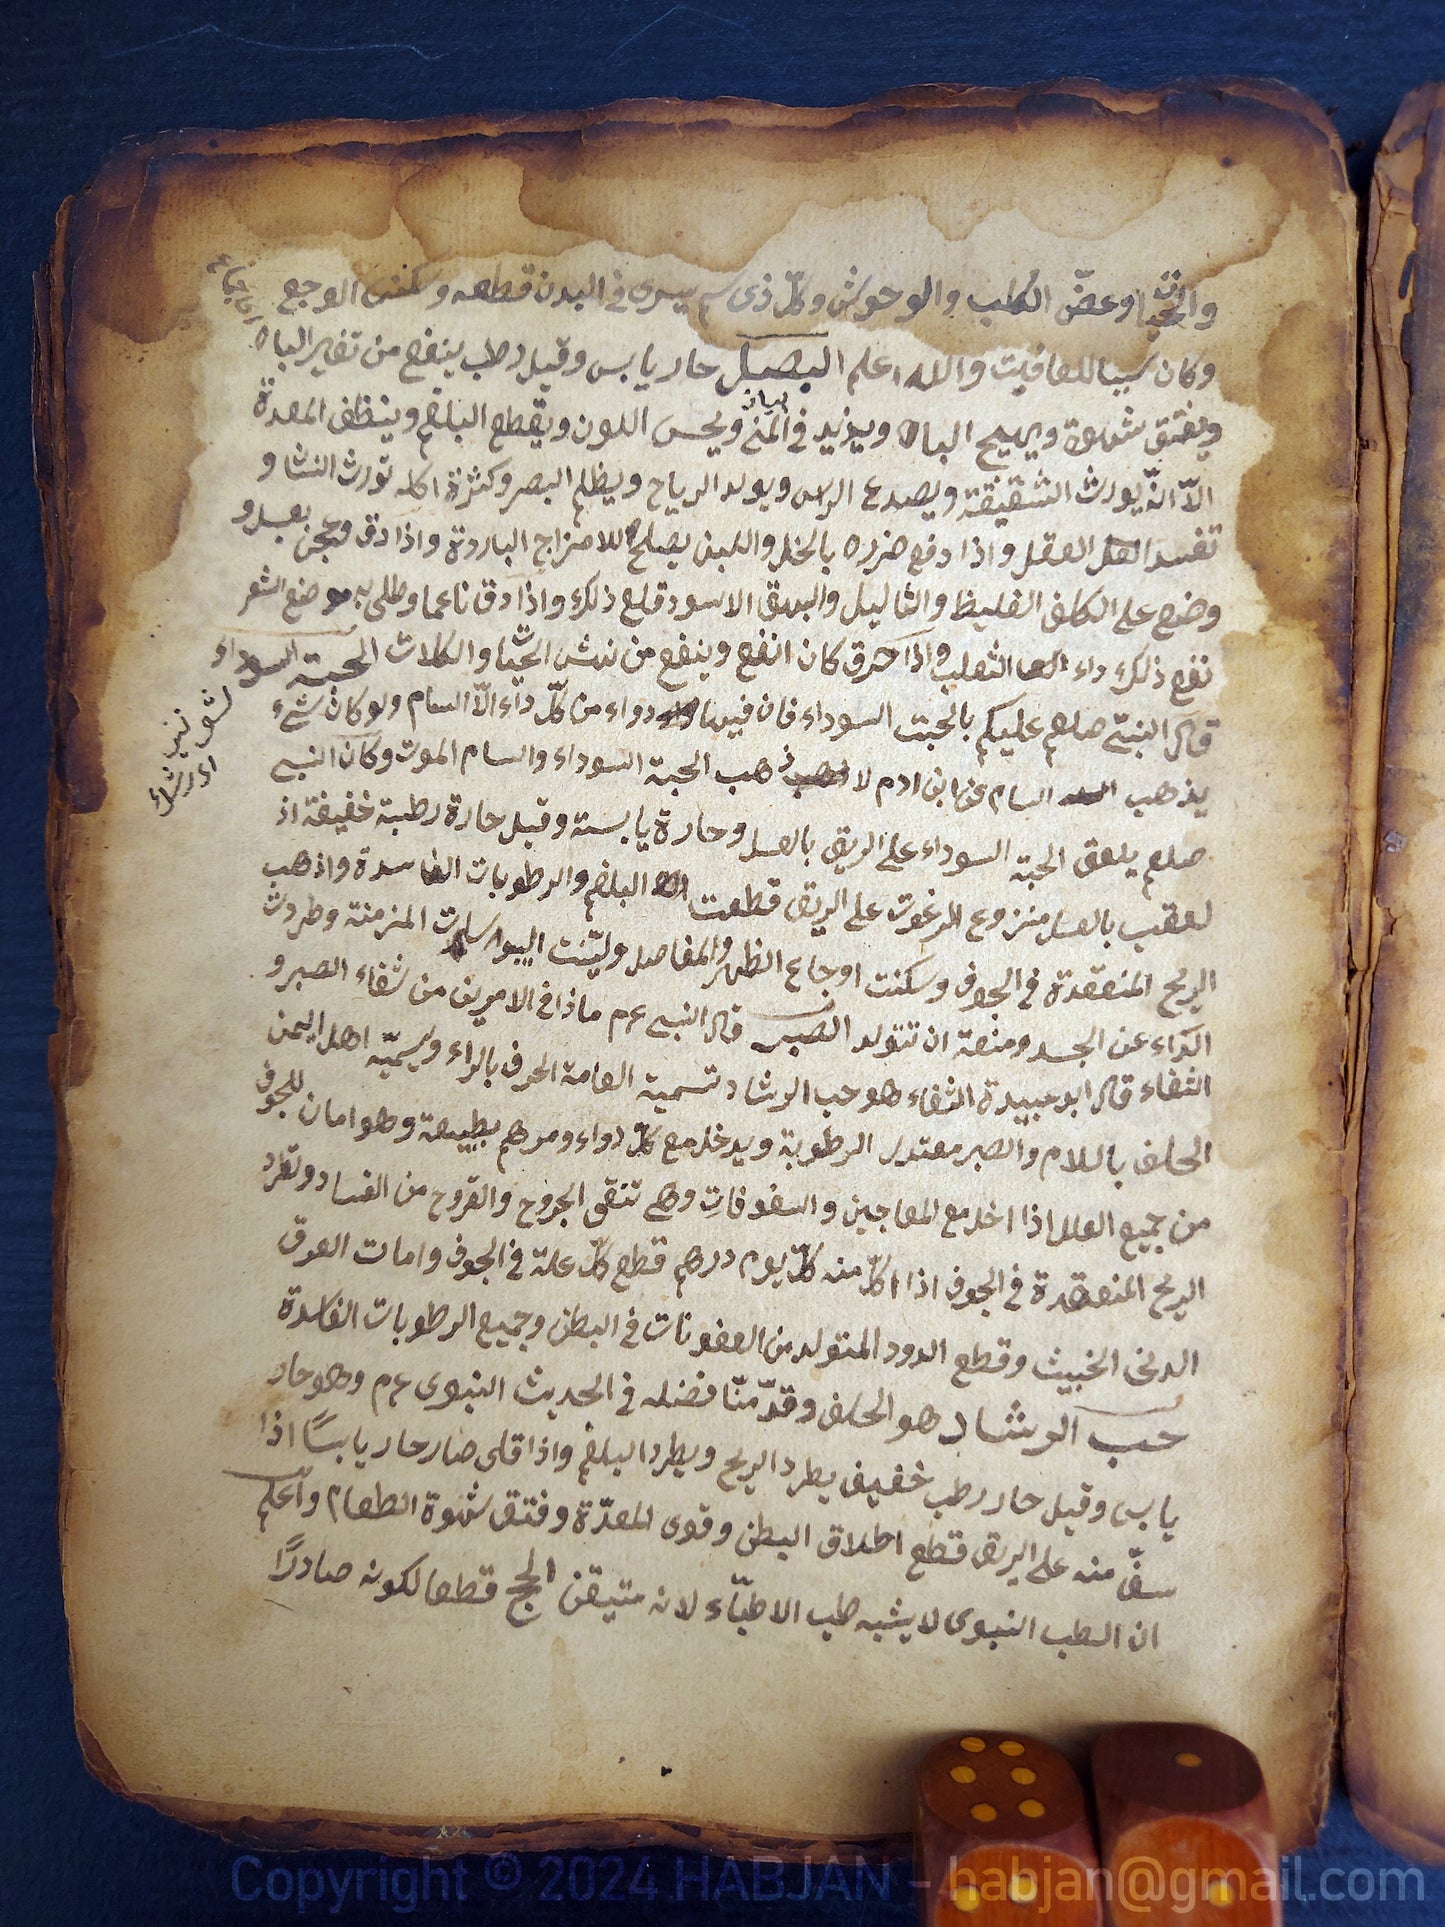 والحيات وعضّ الكلب والوحوش وكلّ ذى سم يسرى فى البدن قطعه وسكنت الوجع
وكان سببا للعافيت والله اعلم البصل حار يابس وقيل رطب ينفع من تغير المياه
ويفتق شهوة ويهيج الباه ويزيد فى المنى ويحسن اللون ويقطع البلغم وينظف المعدة
الاّ انّه يورث الشقيقة ويصدع الراس ويولد الرياح ويظلم البصر وكثرة اكله تورث النشا و
تفسد العقل واذا دفع ضرره بالخل واللبن يصلح للامزاج الباردة واذا دق وعجن بعسل و
وضع على الكلف الغليظ والثاليل والبهق الاسود قلع ذلك واذا دق ناعما وطلى به موضع الشعر
نفع ذلك داء الثعلب واذا حرق كان انفع وينفع من نهش الحيات والكلاب الحبة السوداء
قال النبىّ صلعم عليكم بالحبت السوداء فان فيها دواء من كلّ داء الاّ السام ولو كان شىء
يذهب السام عن ابن ادم لاذهب الحبة السوداء والسام الموت وكان النبى
صلعم يلعق الحبة السوداء على الريق بالعسل وحارة يابسته وقيل حارة رطبة خفيفة اذ
لعقب بالعسل منزوع الرغوت على الريق قطعت البلغم والرطوبات الفاسدة واذهب
الريح المنعقدة فى الجوف وسكنت اوجاع الظهر والمفاصل وليّنت المزمنة وطردت
الداء عن الجسد ومنعة ان تتولد الصبر قال النبى عم ماذا فى الامرين من شفاء الصبر و
الثفاء قال ابو عبيدة الثفاء هو حب الرشاد تسمية العامة الحرف بالراء ويسميّه اهل اليمن
الحلف باللام والصبر معتدل الرطوبة ويدخل مع كلّ دواء ومرهم بطبيعة وهو امان للجوف
من جميع العلل اذا اخلد مع المعاجين والسفوفات وهى تنقى الجروح والقروح من الفساد وتطرد
الريح المنعقدة فى الجوف اذا اكل منه كلّ يوم درهم قطع كلّ علة فى الجوف وامات العرق
الدنى الخبيث وقطع الدود المتولد من العفونات فى البطن وجميع الرطوبات الفاسدة
حب الرشاد هو الحلف وقدّمنّا فضله فى الحديث النبوى عم وهو حار
يابس وقيل حار رطب خفيف يطرد الريح ويطرد البلغم واذا قلى صار حار يابسًا اذا
سفّ منه على الريق قطع اطلاق البطن وقوى المعدة وفتق شهوة الطعام واعلم
ان الطب النبوى لا يشبه طب الاطبّاء لانه متيقن الحج قطعا لكونه صادرًا
Copyright © 2024 HABJAN - habjan@gmail.com